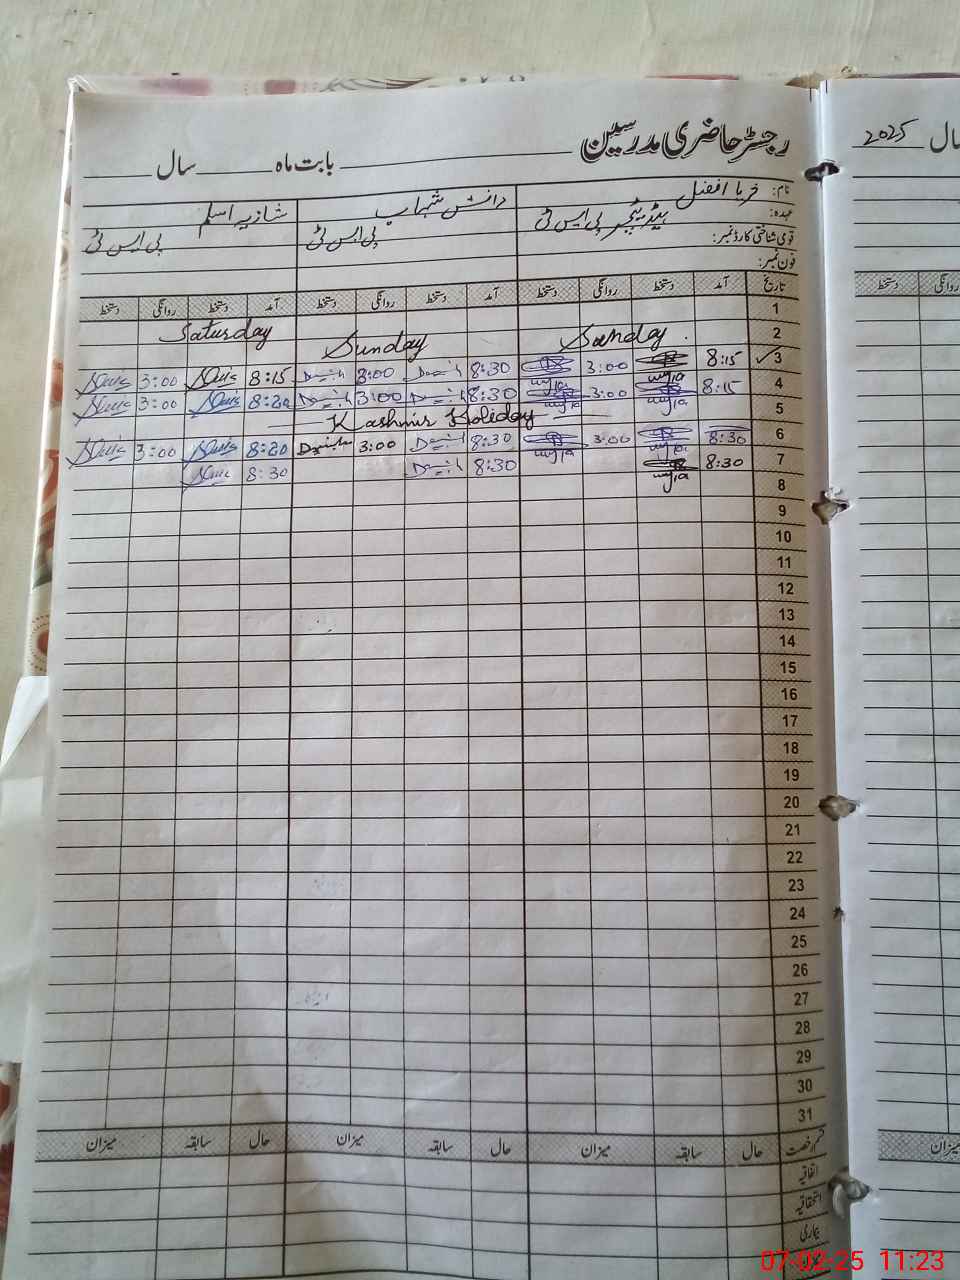 رجسٹر حاضری مدرسین بابت ماہ سال
سال 2025
نام: افضل دانش شہاب شازیہ اسلم
عہدہ: ہیڈ ٹیچر پی ایس ٹی پی ایس ٹی پی ایس ٹی
قومی شناختی کارڈ نمبر:
فون نمبر:
تاریخ آمد دستخط روانگی دستخط آمد دستخط روانگی دستخط آمد دستخط روانگی دستخط
1
2 Sunday Sunday Saturday
3 8:15 3:00 8:30 3:00 8:15 3:00
4 8:15 3:00 8:30 3:00 8:20 3:00
5 Kashmir Holiday
6 8:30 3:00 8:30 3:00 8:20 3:00
7 8:30 8:30 8:30
8
9
10
11
12
13
14
15
16
17
18
19
20
21
22
23
24
25
26
27
28
29
30
31
قسم رخصت حال سابقہ میزان حال سابقہ میزان حال سابقہ میزان
اتفاقیہ
استحقاقیہ
بیماری
دستخط روانگی
میزان
07-02-25 11:23